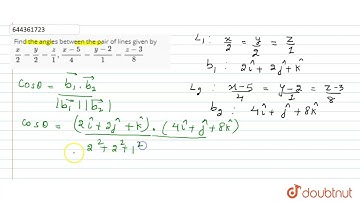 644361723
Find the angles between the pair of lines given by
x/2 = y/2 = z/1, x-5/4 = y-2/1 = z-3/8
L₁ : x/2 = y/2 = z/1
b₁ : 2î + 2ĵ + k̂
L₂ : x-5/4 = y-2/1 = z-3/8
b₂ : 4î + ĵ + 8k̂
cosθ = b₁⃗ . b₂⃗ / |b₁⃗| |b₂⃗|
cosθ = (2î + 2ĵ + k̂) . (4î + ĵ + 8k̂)
2² + 2² + 1²
doubtnut